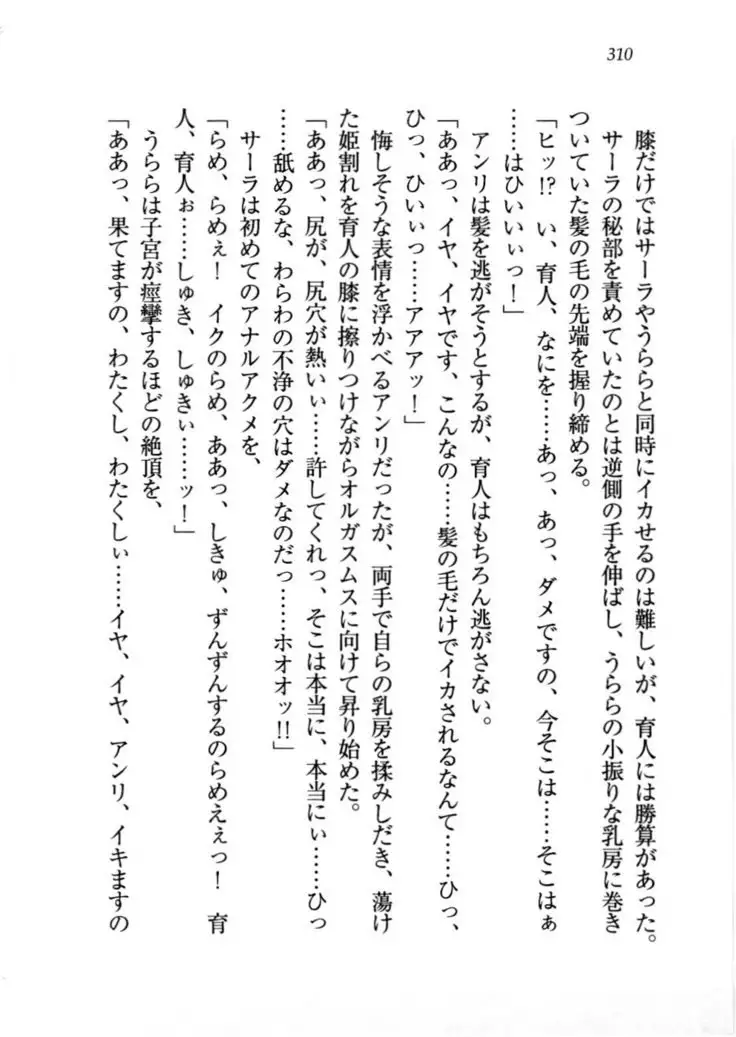 310
膝だけではサーラやうららと同時にイカせるのは難しいが、育人には勝算があった。
サーラの秘部を責めていたのとは逆側の手を伸ばし、うららの小振りな乳房に巻き
ついていた髪の毛の先端を握り締める。
「ヒッ!?　い、育人、なにを……あっ、あっ、ダメですの、今そこは……そこはぁ
……はひいいぃっ！」
アンリは髪を逃がそうとするが、育人はもちろん逃がさない。
「ああっ、イヤ、イヤです、こんなの……髪の毛だけでイカされるなんて……ひっ、
ひっ、ひいぃっ……アアアッ！」
悔しそうな表情を浮かべるアンリだったが、両手で自らの乳房を揉みしだき、蕩け
た姫割れを育人の膝に擦りつけながらオルガスムスに向けて昇り始めた。
「ああっ、尻が、尻穴が熱いぃ……許してくれっ、そこは本当に、本当にぃ……ひっ
……舐めるな、わらわの不浄の穴はダメなのだっ……ホオオッ!!」
サーラは初めてのアナルアクメを、
「らめ、らめぇ！　イクのらめ、ああっ、しきゅ、ずんずんするのらめえぇっ！　育
人、育人ぉ……しゅき、しゅきぃ……ッ！」
うららは子宮が痙攣するほどの絶頂を、
「ああっ、果てますの、わたくし、わたくしぃ……イヤ、イヤ、アンリ、イキますの